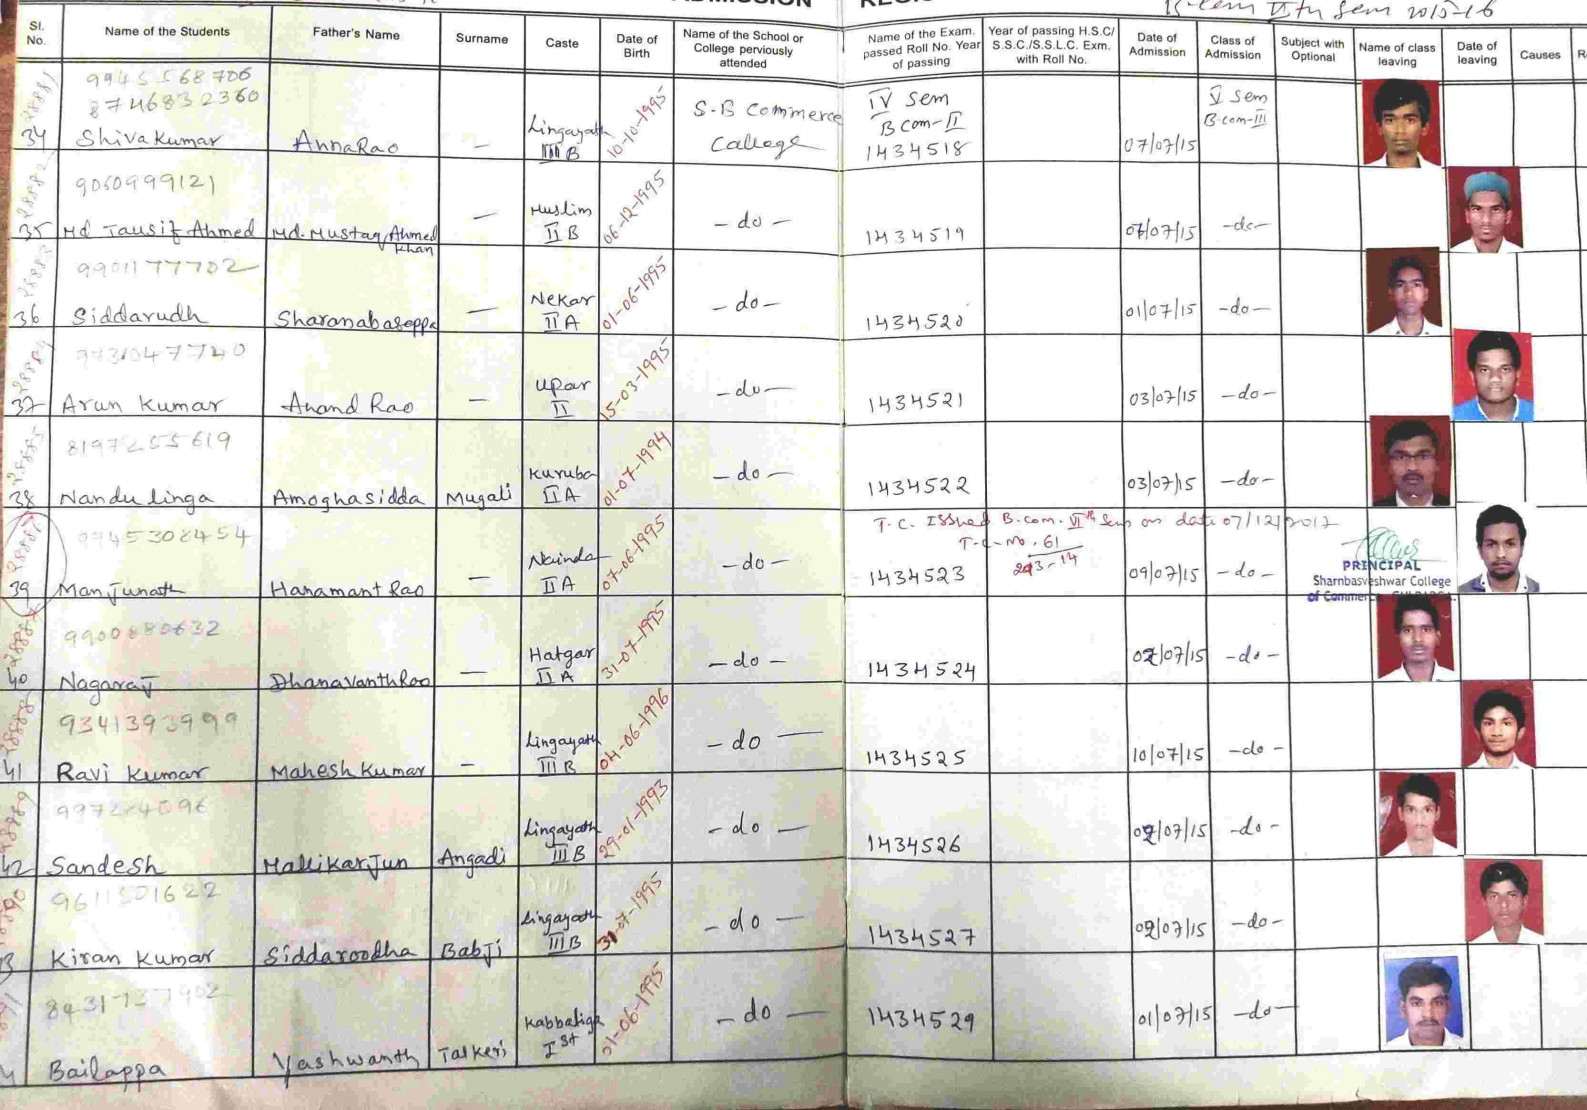 ADMISSION REGIS
Vth Sem 2015-16
Sl. No. Name of the Students Father's Name Surname Caste Date of Birth Name of the School or College perviously attended Name of the Exam. passed Roll No. Year of passing Year of passing H.S.C/ S.S.C./S.S.L.C. Exm. with Roll No. Date of Admission Class of Admission Subject with Optional Name of class leaving Date of leaving Causes
28881
9945568706
8746832360
34 Shivakumar AnnaRao — Lingayath III B 10-10-1995 S-B Commerce College IV Sem B com-II 1434518 07/07/15 V Sem B-com-III
28882
9060999121
35 Md Tausif Ahmed Md. Mustaq Ahmed Khan — Muslim II B 06-12-1995 -do- 1434519 07/15 -do-
28883
9901177702
36 Siddarudh Sharanabasappa — Nekar II A 01-06-1995 -do- 1434520 01/07/15 -do-
28884
9731047740
37 Arun Kumar Anand Rao — Upar II 15-03-1995 -do- 1434521 03/07/15 -do-
28885
8197255619
38 Nandulinga Amoghasidda Mugali Kuruba II A 01-07-1994 -do- 1434522 03/07/15 -do-
T.C. Issued B.com. VIth Sem on date 07/12/2017
T-C-No. 61
9945308454
39 Manjunath Hanamant Rao — II A 07-06-1995 -do- 1434523 09/07/15 -do-
PRINCIPAL
Sharnbasveshwar College
of Commerce
9900880632
40 Nagaraj DhanavanthRao — Hatgar II A 31-07-1995 -do- 1434524 07/15 -do-
28888
9341393999
41 Ravi Kumar Mahesh Kumar — Lingayath III B 04-06-1996 -do- 1434525 10/07/15 -do-
28889
42 Sandesh Mallikarjun Angadi Lingayath III B 29-01-1993 -do- 1434526 07/15 -do-
9611501622
Kiran Kumar Siddaroodha Babji Lingayath III B 07-1995 -do- 1434527 07/15 -do-
Bailappa Yashwanth Talkeri Kabbaliga Ist 01-06-1995 -do- 1434529 01/07/15 -do-